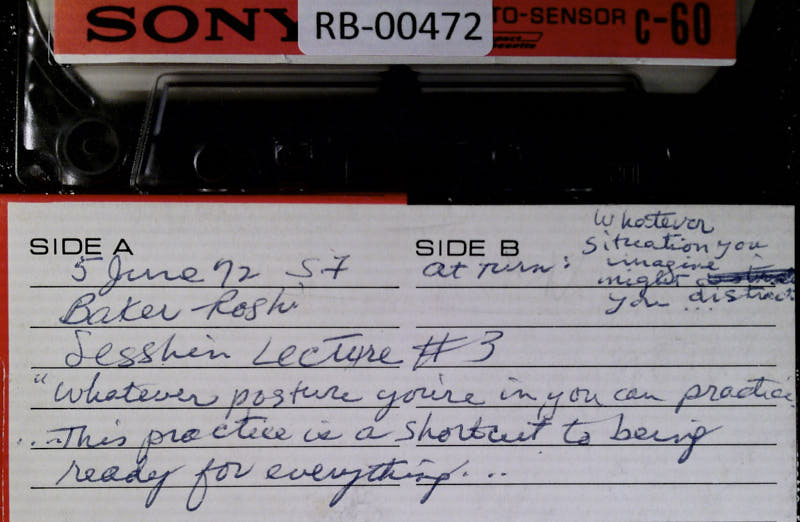 SONY
RB-00472
TO-SENSOR C-60
SIDE A
5 June 72 SF
Baker Roshi
Sesshin Lecture #3
"Whatever posture you're in you can practice
...This practice is a shortcut to being
ready for everything...
SIDE B
at turn:
Whatever
situation you
imagine
might
you distract
...